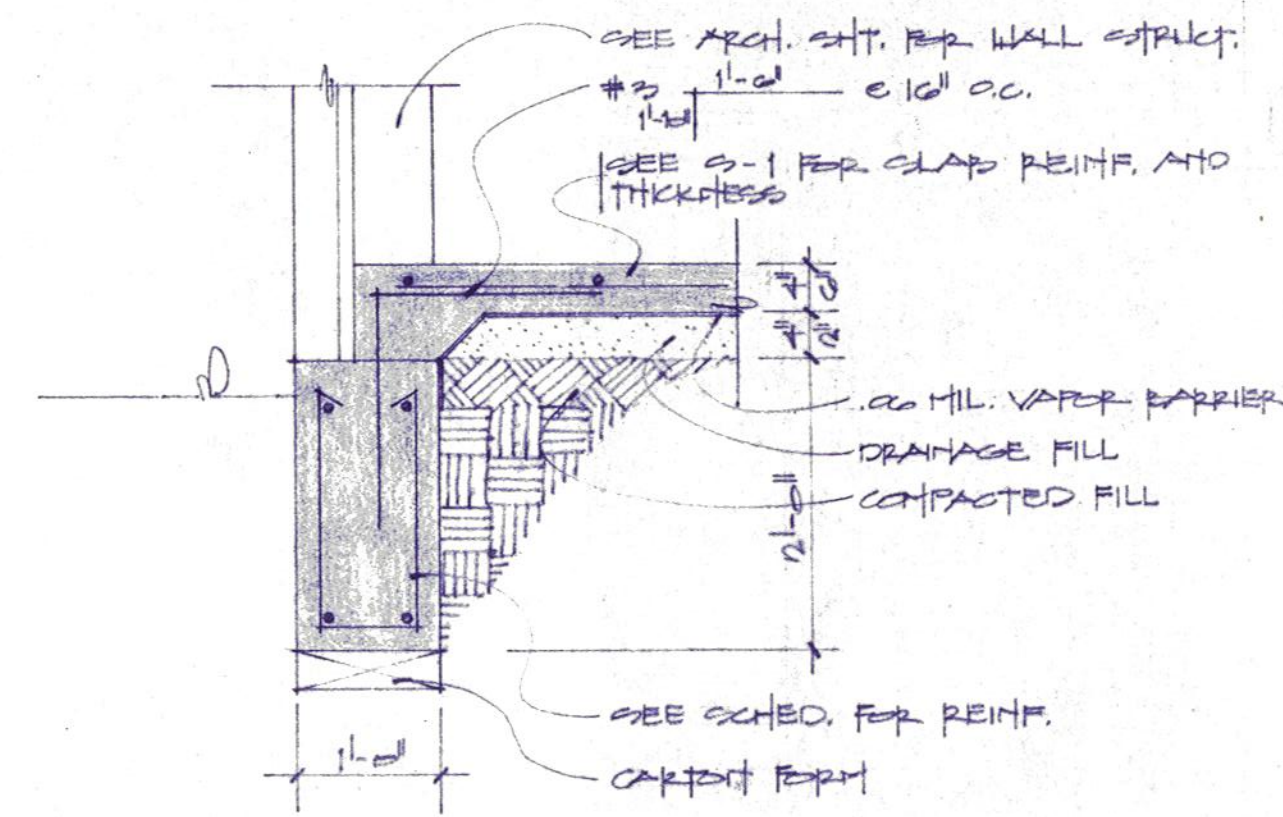 SEE ARCH. SHT. FOR WALL STRUCT.
#3 1'-6" @ 16" O.C.
SEE S-1 FOR SLAB REINF. AND
THICKNESS
4" 6"
4" 2"
.06 MIL. VAPOR BARRIER
DRAINAGE FILL
COMPACTED FILL
2'-0"
SEE SCHED. FOR REINF.
1'-0"
CARTON FORM